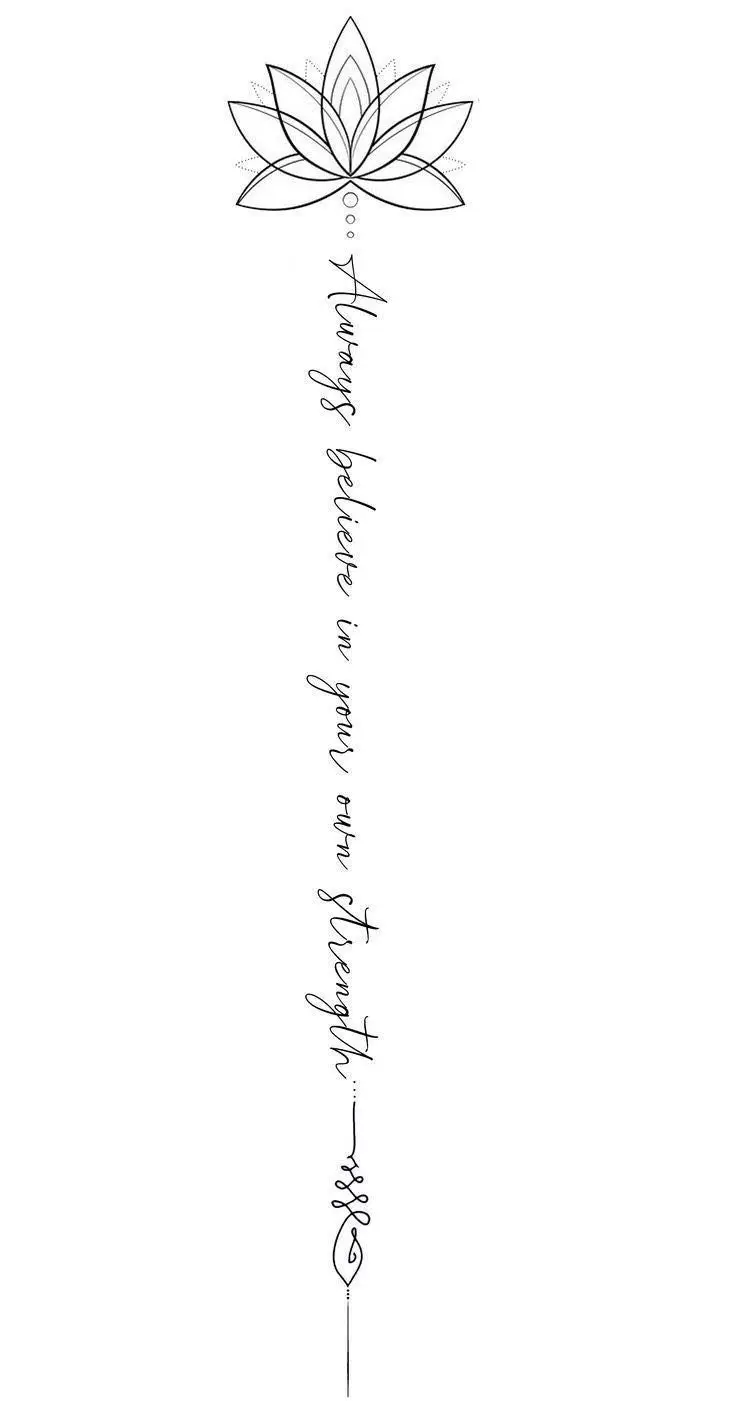 Always believe in your own strength...